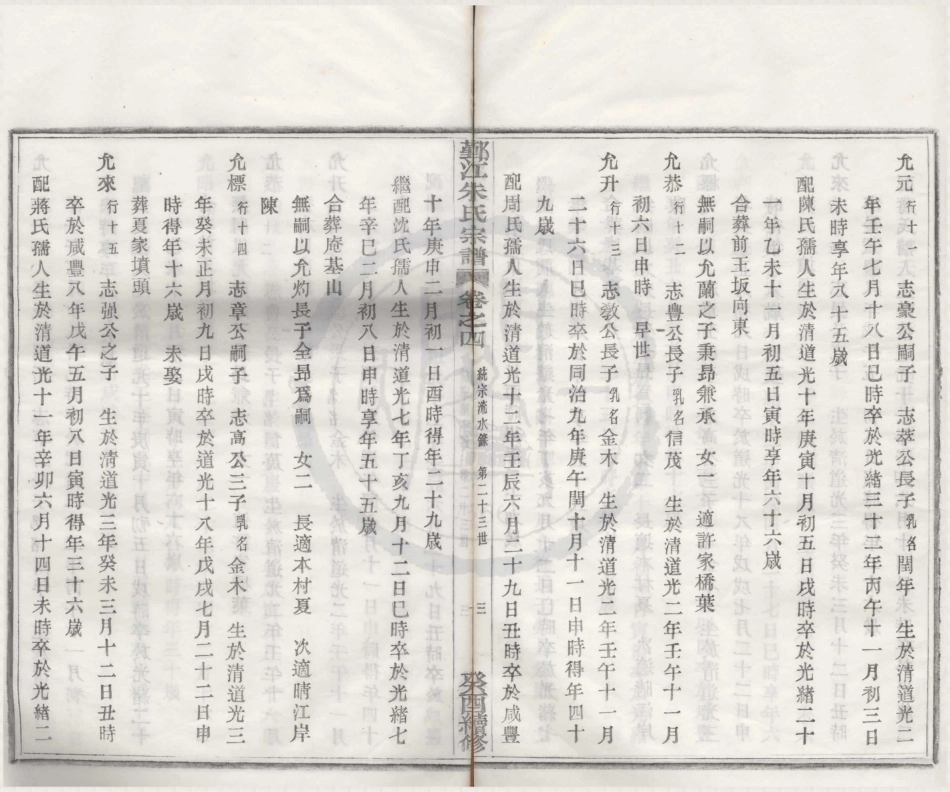 允元行十一　志豪公嗣子　志萃公長子乳名閏年　生於清道光二
年壬午七月十八日巳時卒於光緒三十二年丙午十一月初三日
未時享年八十五歲
配陳氏孺人生於清道光十年庚寅十月初五日戌時卒於光緒二十
一年乙未十二月初五日寅時享年六十六歲
合葬前王坂向東
無嗣以允蘭之子秉昻兼承　女一　適許家橋葉
允恭行十二　志豊公長子乳名信茂　生於清道光二年壬午十一月
初六日申時　早世
允升行十三　志敎公長子乳名金木　生於清道光二年壬午十一月
二十六日巳時卒於同治九年庚午閏十月十一日申時得年四十
九歲
配周氏孺人生於清道光十二年壬辰六月二十九日丑時卒於咸豐
鄞江朱氏宗譜　卷之四　統宗流水錄　第二十三世　三　癸酉續修
十年庚申二月初一日酉時得年二十九歲
繼配沈氏孺人生於清道光七年丁亥九月十二日巳時卒於光緒七
年辛巳二月初八日申時享年五十五歲
合葬庵基山
無嗣以允灼長子全昻爲嗣　女二　長適本村夏　次適晴江岸
陳
允標行十四　志章公嗣子　志高公三子乳名金木　生於清道光三
年癸未正月初九日戌時卒於道光十八年戊戌七月二十二日申
時得年十六歲　未娶
葬夏家墳頭
允來行十五　志强公之子　生於清道光三年癸未三月十二日丑時
卒於咸豐八年戊午五月初八日寅時得年三十六歲
配蔣氏孺人生於清道光十一年辛卯六月十四日未時卒於光緒二